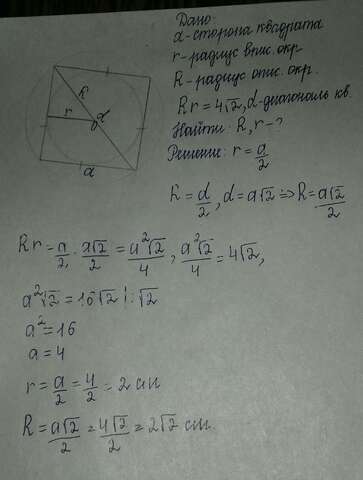 Дано:
a - сторона квадрата
r - радиус впис. окр.
R - радиус опис. окр.
Rr = 4√2, d - диагональ кв.
Найти: R, r - ?
Решение: r = a/2
R = d/2, d = a√2 => R = a√2/2
R
r
d
a
Rr = a/2 · a√2/2 = a²√2/4, a²√2/4 = 4√2,
a²√2 = 16√2 | : √2
a² = 16
a = 4
r = a/2 = 4/2 = 2 см
R = a√2/2 = 4√2/2 = 2√2 см.